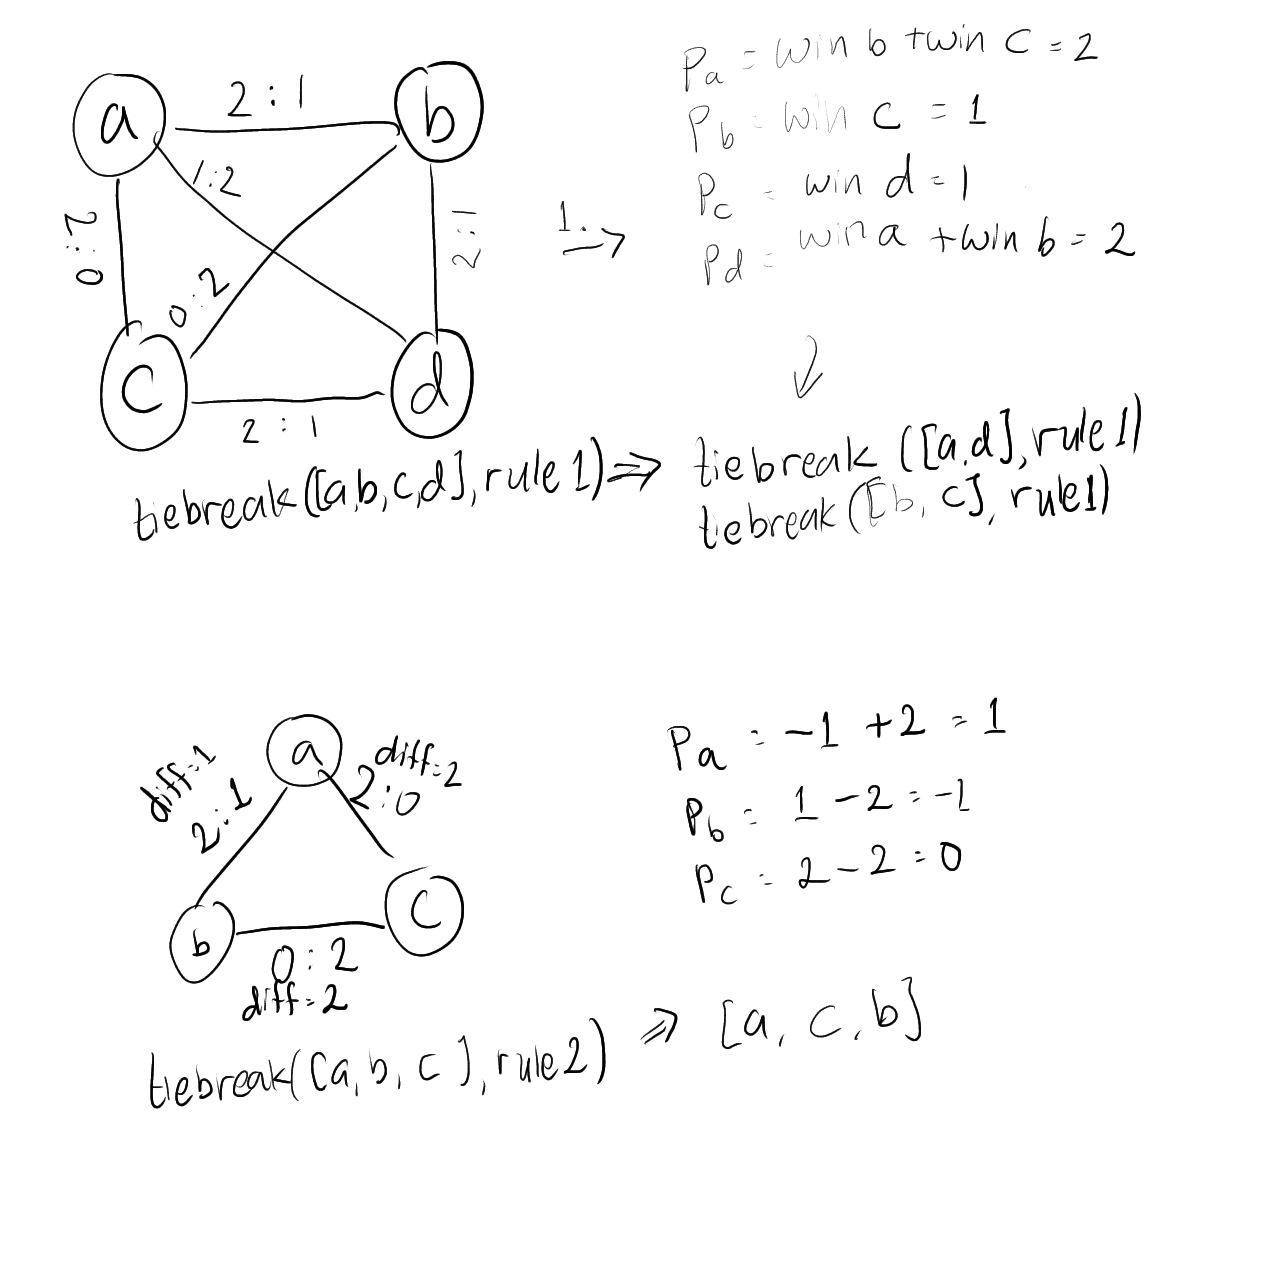 a 2 : 1 b
1:2
2:0
0:2
2:1
c 2 : 1 d
1.
Pa = win b + win c = 2
Pb = win c = 1
Pc = win d = 1
Pd = win a + win b = 2
tiebreak([a,b,c,d], rule 1) => tiebreak([a,d], rule 1)
tiebreak([b, c], rule 1)
a
diff=1
2:1
diff=2
2:0
b
c
0:2
diff=2
Pa = -1 + 2 = 1
Pb = 1 - 2 = -1
Pc = 2 - 2 = 0
tiebreak([a, b, c], rule 2) => [a, c, b]